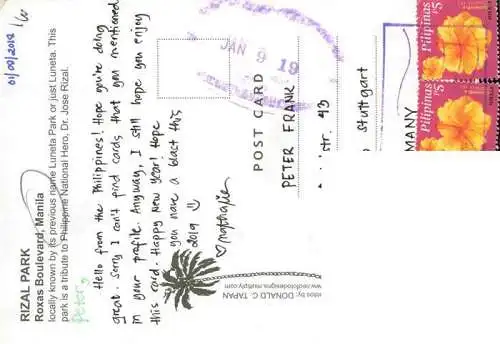 RIZAL PARK
Roxas Boulevard, Manila
locally known by its previous name Luneta Park or just Luneta. This
park is a tribute to Philippine National Hero, Dr. Jose Rizal.
Peter,
Hello from the Philippines! Hope you're doing
great. Sorry I can't find cards that you mentioned
in your profile. Anyway, I still hope you enjoy
this card. Happy New Year! Hope
you have a blast this
2019
nathalie
DONALD C. TAPAN
POST CARD
PETER FRANK
str. 43
Stuttgart
MANY
JAN 9 19
Pilipinas 5
Pilipinas 5